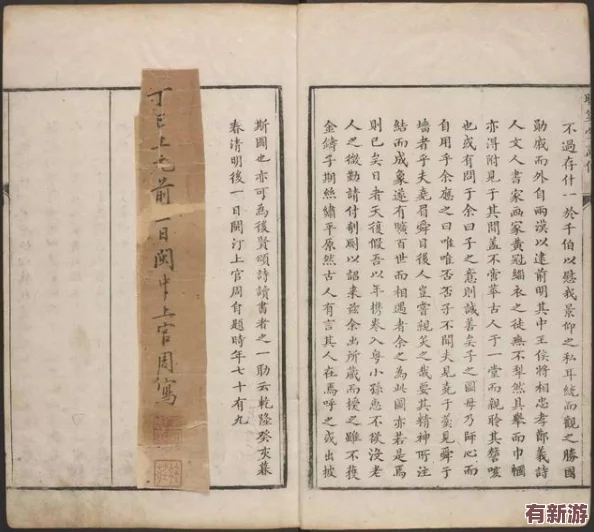 不過存什一於千伯以慰我景仰之私耳統而觀之勝國
勛戚而外自兩漢以逮前明其中王侯將相忠孝節義詩
人文人書家画家黃冠緇衣之徒無不犁然具舉而巾幗
亦得附見于其間蓋不啻萃古人于一堂而親聆其謦咳
也或有問于余曰子之意則誠善矣子之圖毋乃師心而
自用乎余應之曰唯唯否否子不聞夫見堯于羹見舜于
墻者乎夫堯眉舜目後人豈嘗親炙之哉要其精神所注
結而成象遂有曠百世而相遇者余之為此圖亦若是焉
則已矣日者天復假吾以年携卷入粵小孫惠不欲沒老
人之微勤請付剞劂以詔來茲余出所藏而授之雖不獲
金鑄子期絲繡平原然古人有言其人在焉呼之或出披
斯圖也亦可為後賢頌詩讀書者之一助云乾隆癸亥暮
春清明後一日閩汀上官周自題時年七十有九
丁巳上元前一日閩中上官周寫
有新游